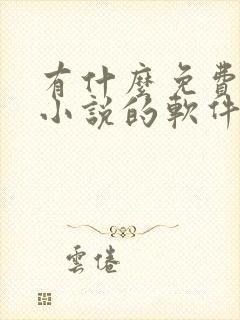 有什麼免費
小說的軟件
雲倦